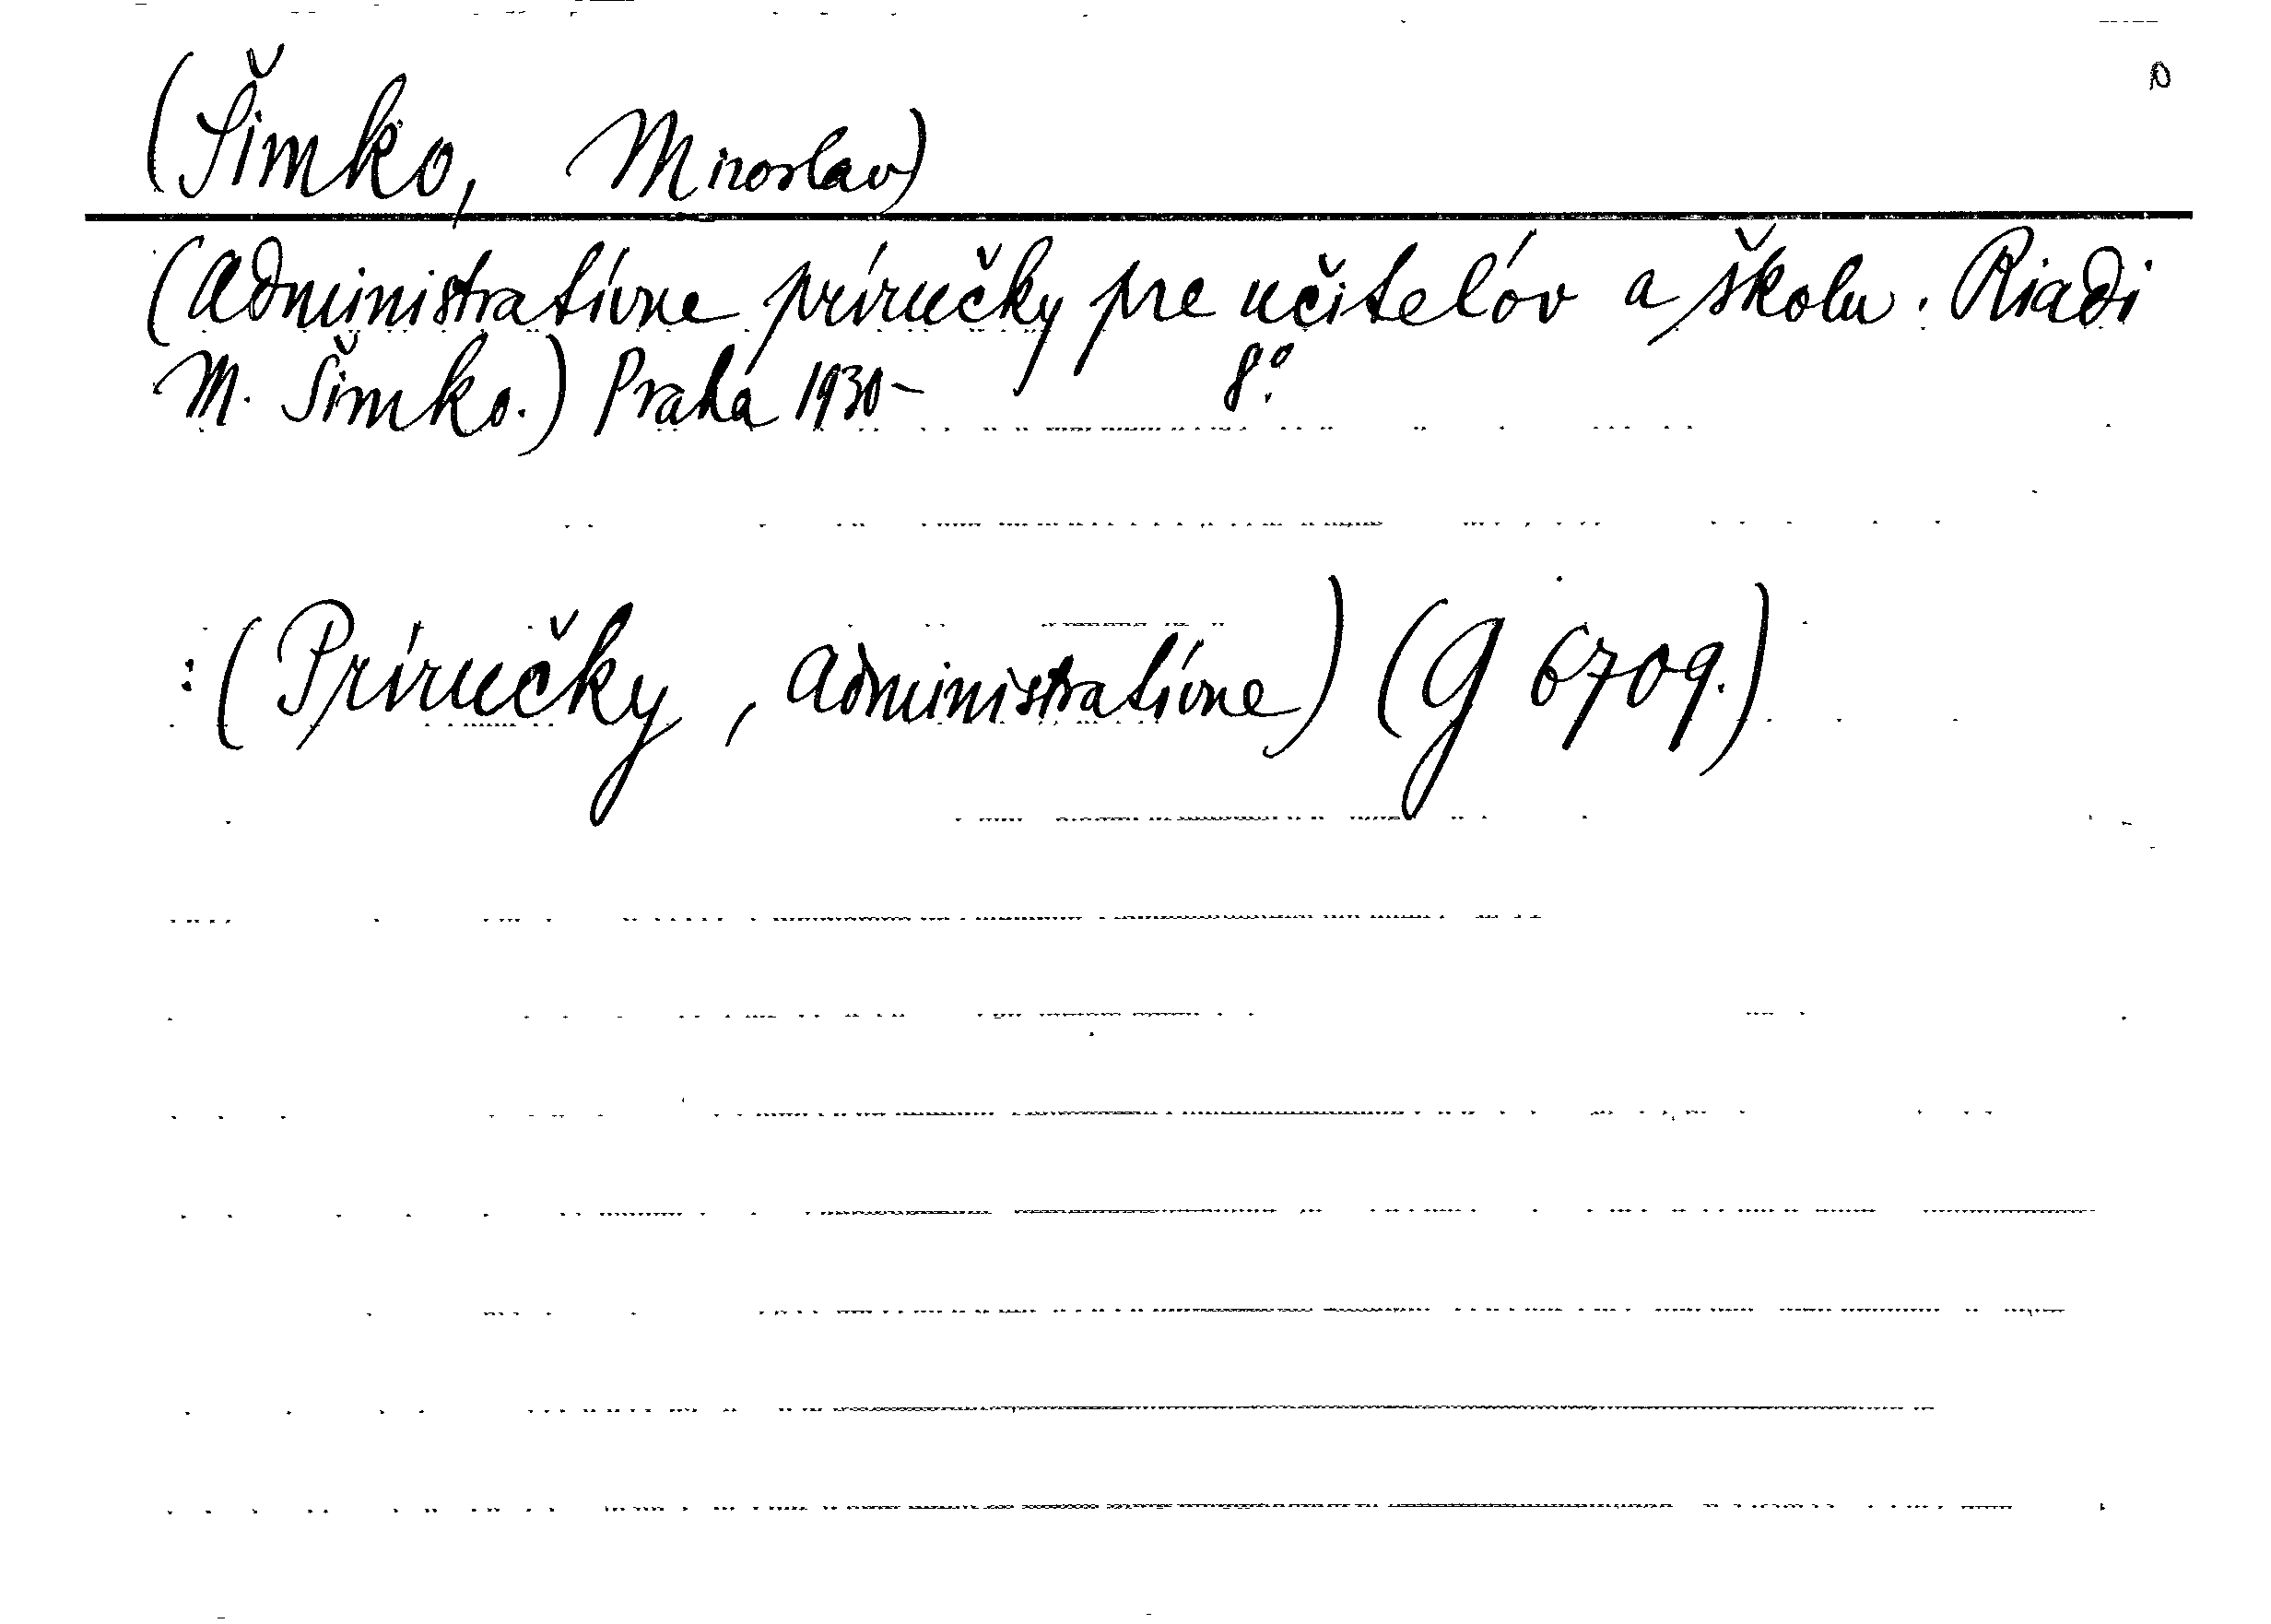 (Šimko, Miroslav)
(Administratívne príručky pre učitelóv a školu. Riadi
M. Šimko.) Praha 1930- 8º.
:(Príručky, administratívne) (G 6709.)